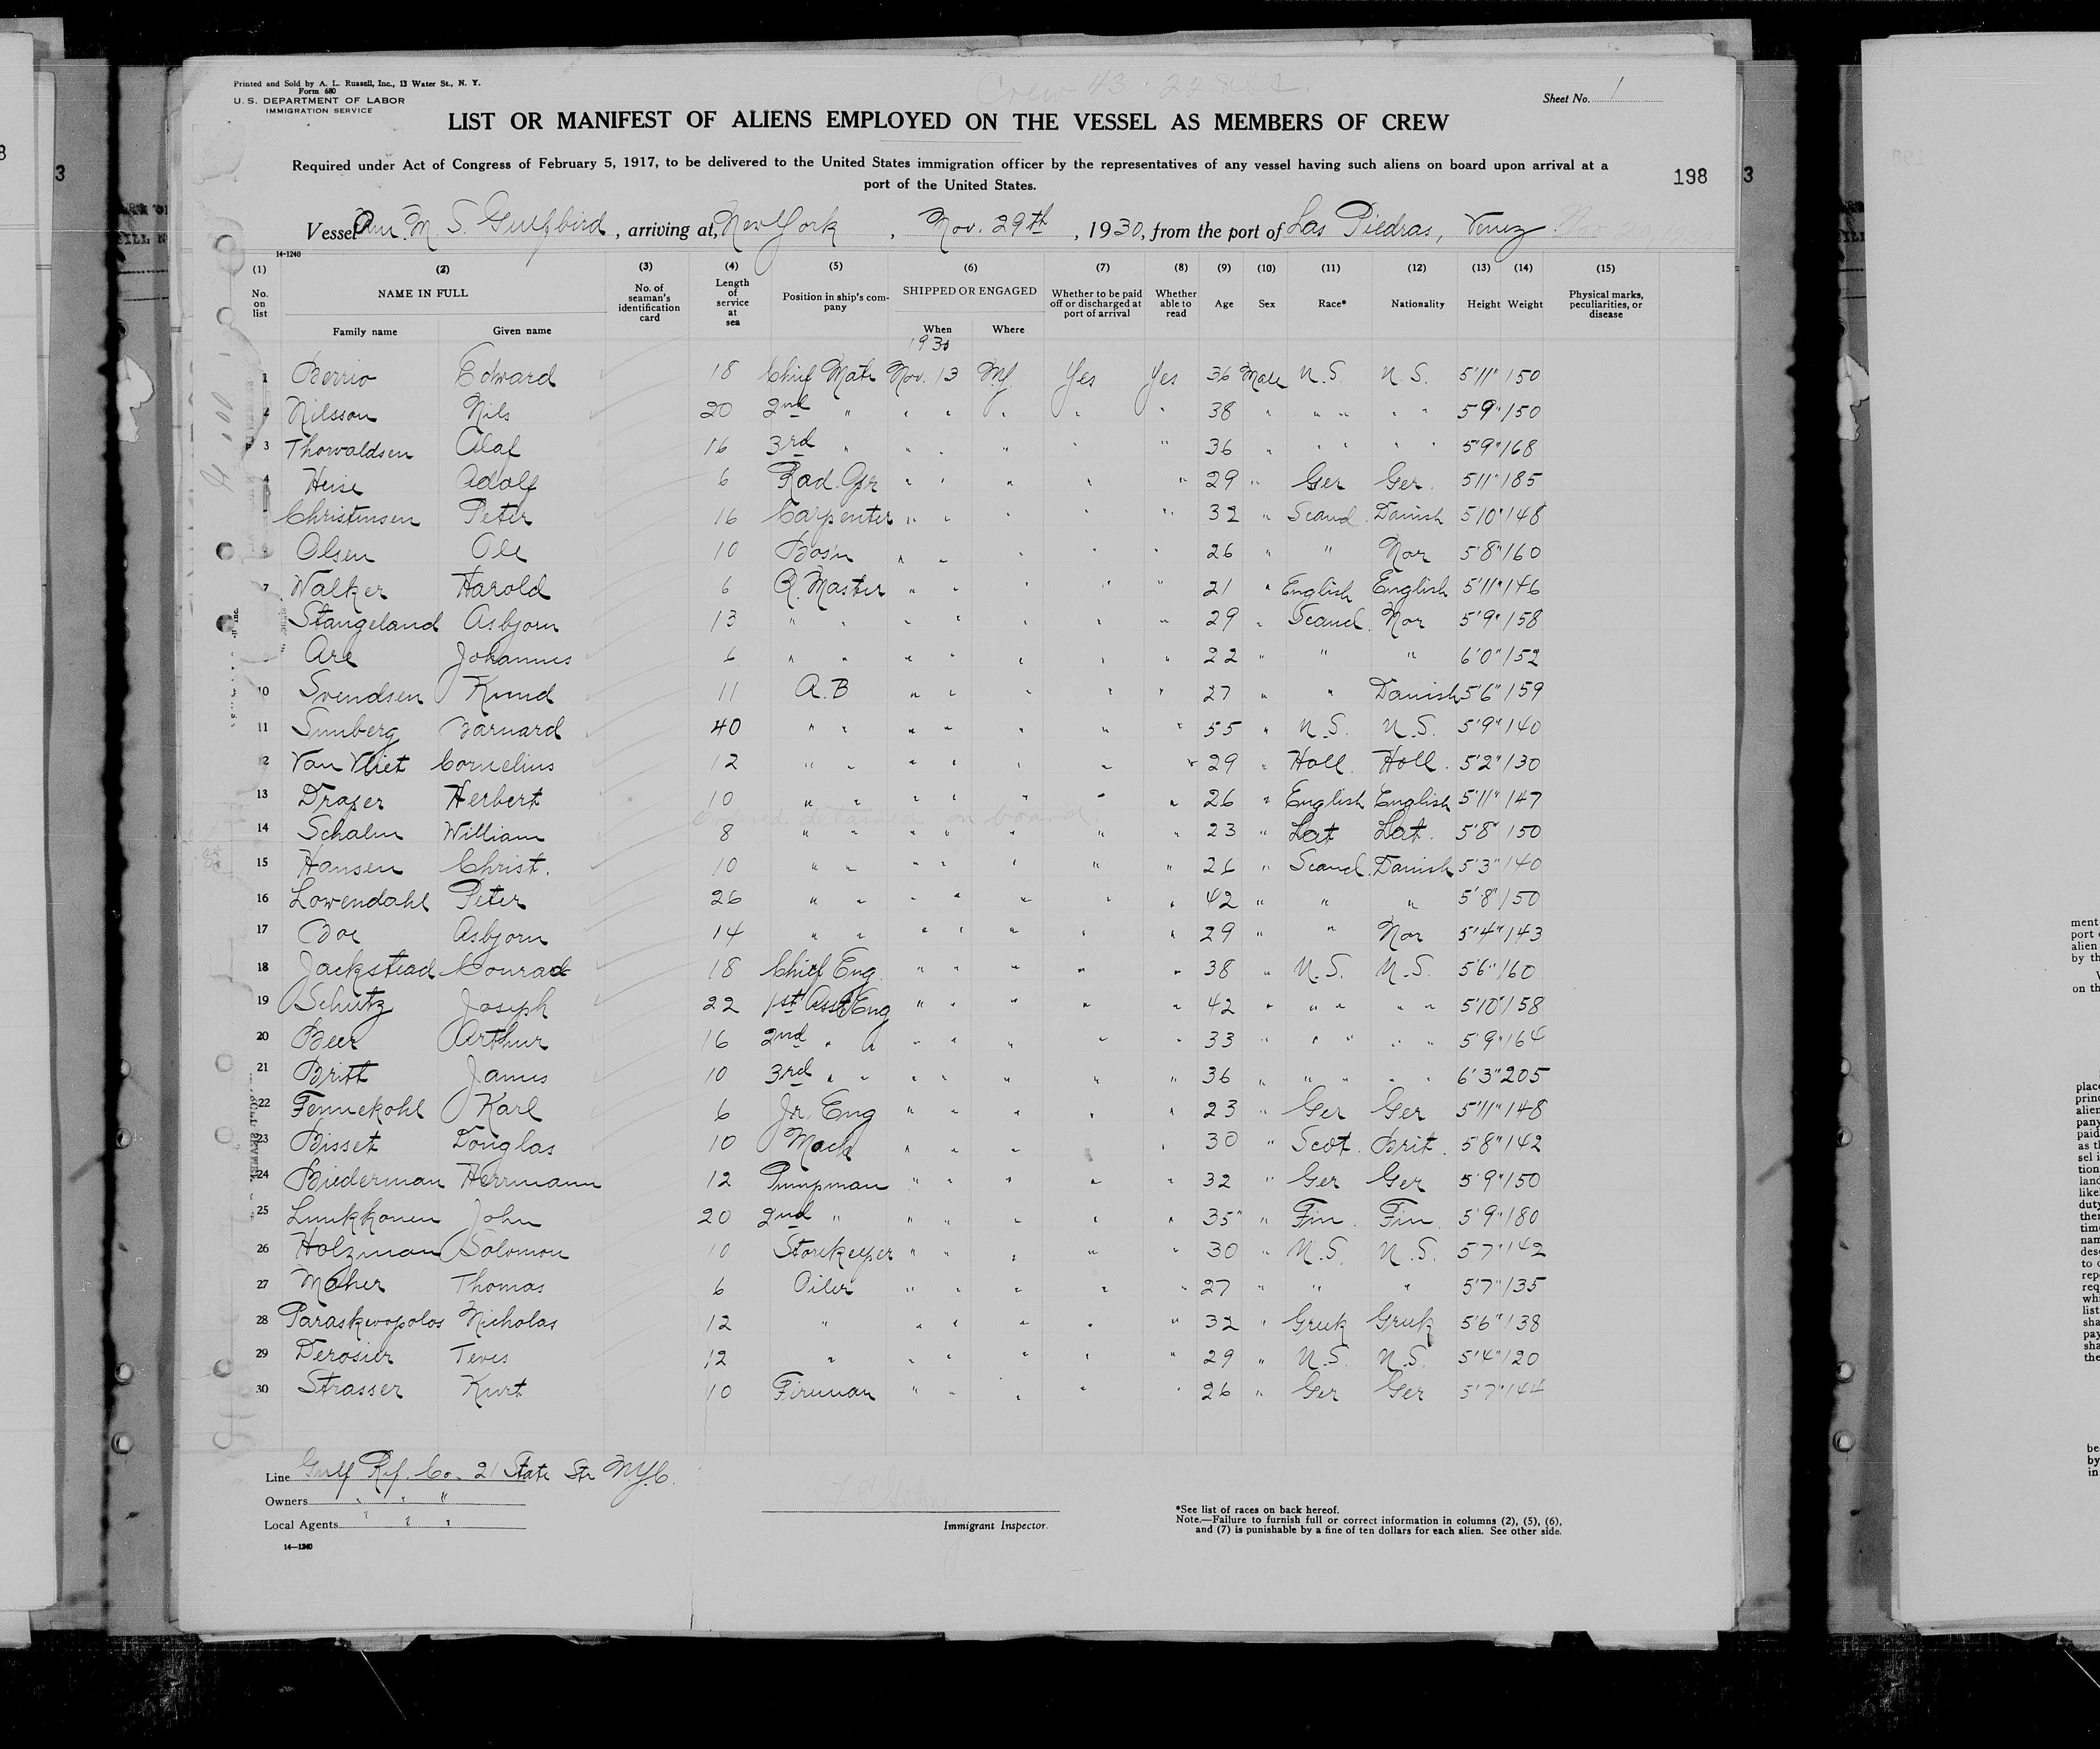 Crew 43
Printed and Sold by A. L. Russell, Inc., 13 Water St., N. Y.
Form 680
U. S. DEPARTMENT OF LABOR
IMMIGRATION SERVICE
Sheet No. 1
LIST OR MANIFEST OF ALIENS EMPLOYED ON THE VESSEL AS MEMBERS OF CREW
Required under Act of Congress of February 5, 1917, to be delivered to the United States immigration officer by the representatives of any vessel having such aliens on board upon arrival at a
port of the United States.
198
3
Vessel Am. M. S. Gulfbird, arriving at New York, Nov. 29th, 1930, from the port of Las Piedras, Venez.
14-1240
(1) (2) (3) (4) (5) (6) (7) (8) (9) (10) (11) (12) (13) (14) (15)
No. on list NAME IN FULL Family name Given name No. of seaman's identification card Length of service at sea Position in ship's company SHIPPED OR ENGAGED When Where Whether to be paid off or discharged at port of arrival Whether able to read Age Sex Race* Nationality Height Weight Physical marks, peculiarities, or disease
1930
1 Berrio Edward 18 Chief Mate Nov. 13 NY. Yes Yes 36 Male U.S. U.S. 5'11" 150
2 Nilsson Nils 20 2nd " " " " " " 38 " " " " " 5'9" 150
3 Thorvaldsen Olaf 16 3rd " " " " " " 36 " " " " " 5'9" 168
4 Heise Adolf 6 Rad. Opr " " " " " 29 " Ger Ger. 5'11" 185
Christensen Peter 16 Carpenter " " " " " 32 " Scand. Danish 5'10" 148
Olsen Ole 10 Bosn " " " " " 26 " " Nor 5'8" 160
7 Walker Harold 6 Q. Master " " " " " 21 " English English 5'11" 146
Stangeland Asbjorn 13 " " " " " " " 29 " Scand. Nor 5'9" 158
Are Johannes 6 " " " " " " " 22 " " " 6'0" 152
10 Svendsen Knud 11 A.B " " " " " 27 " " Danish 5'6" 159
11 Sunberg Barnard 40 " " " " " " " 55 " U.S. U.S. 5'9" 140
12 Van Vliet Cornelius 12 " " " " " " " 29 " Holl. Holl. 5'2" 130
13 Draper Herbert 10 " " " " " " " 26 " English English 5'11" 147
detained on board.
14 Schalm William 8 " " " " " " " 23 " Lat Lat. 5'8" 150
15 Hansen Christ. 10 " " " " " " " 26 " Scand. Danish 5'3" 140
16 Lowendahl Peter 26 " " " " " " " 42 " " " 5'8" 150
17 Boe Asbjorn 14 " " " " " " " 29 " " Nor 5'4" 143
18 Jackstead Conrad 18 Chief Eng. " " " " " 38 " U.S. U.S. 5'6" 160
19 Schutz Joseph 22 1st Asst Eng " " " " " 42 " " " " " 5'10" 158
20 Beer Arthur 16 2nd " " " " " " " 33 " " " " " 5'9" 164
21 Britt James 10 3rd " " " " " " " 36 " " " " " 6'3" 205
22 Fennekohl Karl 6 Jr. Eng " " " " " 23 " Ger Ger 5'11" 148
23 Bisset Douglas 10 Mach " " " " " 30 " Scot. Brit. 5'8" 142
24 Biederman Herrmann 12 Pumpman " " " " " 32 " Ger Ger 5'9" 150
25 Luukkonen John 20 2nd " " " " " " 35 " Fin. Fin. 5'9" 180
26 Holzman Solomon 10 Storekeeper " " " " " 30 " U.S. U.S. 5'7" 142
27 Maher Thomas 6 Oiler " " " " " 27 " " " 5'7" 135
28 Paraskevopolos Nicholas 12 " " " " " " 32 " Greek Greek 5'6" 138
29 Derosier Teves 12 " " " " " " 29 " U.S. U.S. 5'4" 120
30 Strasser Kurt 10 Fireman " " " " " 26 " Ger Ger 5'7" 144
Line Gulf Ref. Co. 21 State Str N.Y.C.
Owners " " "
Local Agents " " "
Immigrant Inspector.
*See list of races on back hereof.
Note.—Failure to furnish full or correct information in columns (2), (5), (6),
and (7) is punishable by a fine of ten dollars for each alien. See other side.
14—1240